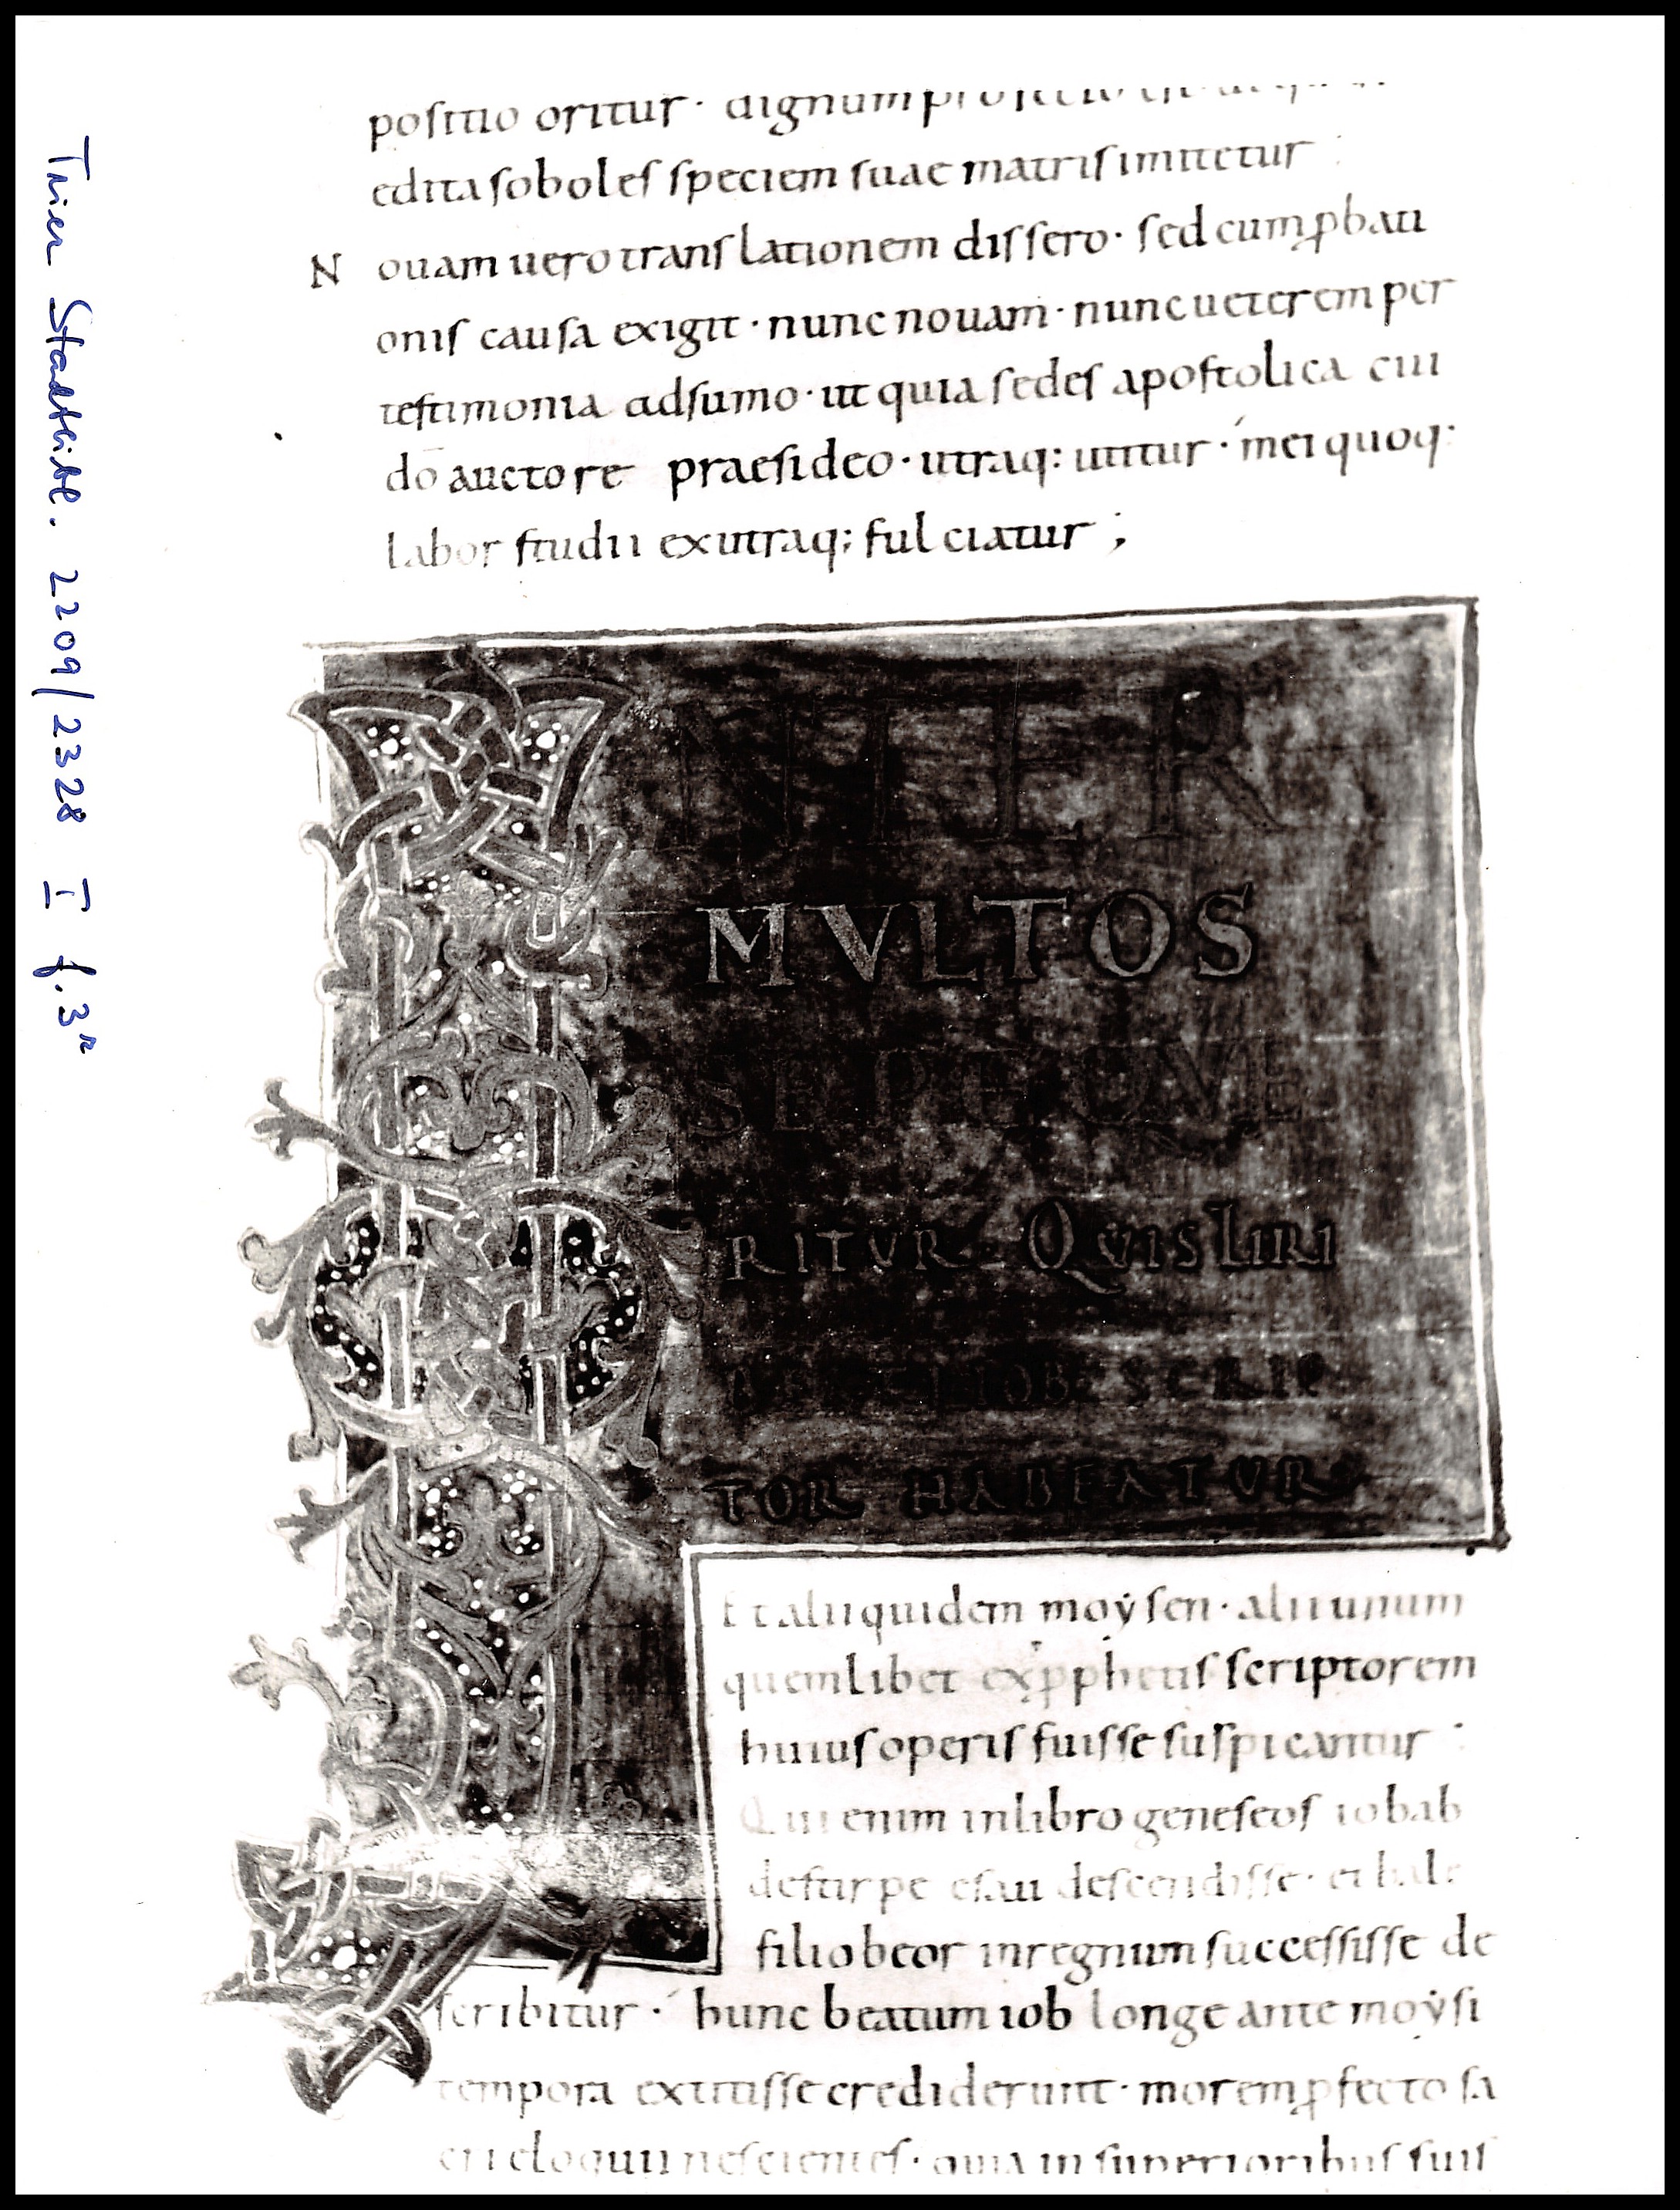 Trier Stadtbibl. 2209/2328 I f.3r
positio oritur · dignum
edita soboles speciem suae matris imitetur :
Nouam uero translationem dissero · sed cum ꝓbati
onis causa exigit · nunc nouam · nunc ueterem per
testimonia adsumo · ut quia sedes apostolica cui
dō auctore praesideo · utraq: utitur · mei quoq:
labor studii ex utraq; fulciatur ;
NTER
MVLTOS
SEPE QVE
RITVR QVIS LIBRI
BEATI IOB SCRIP
TOR HABEATVR
Et alii quidem moẏsen · alii unum
quemlibet ex ꝓphetis scriptorem
huius operis fuisse suspicantur :
Qui enim in libro geneseos iobab
de stirpe esau descendisse · et bale
filio beor in regnum successisse de
scribitur · hunc beatum iob longe ante moẏsi
tempora extitisse crediderunt · morem ꝓfecto sa
cri eloquii nescientes · quia in superioribus suis